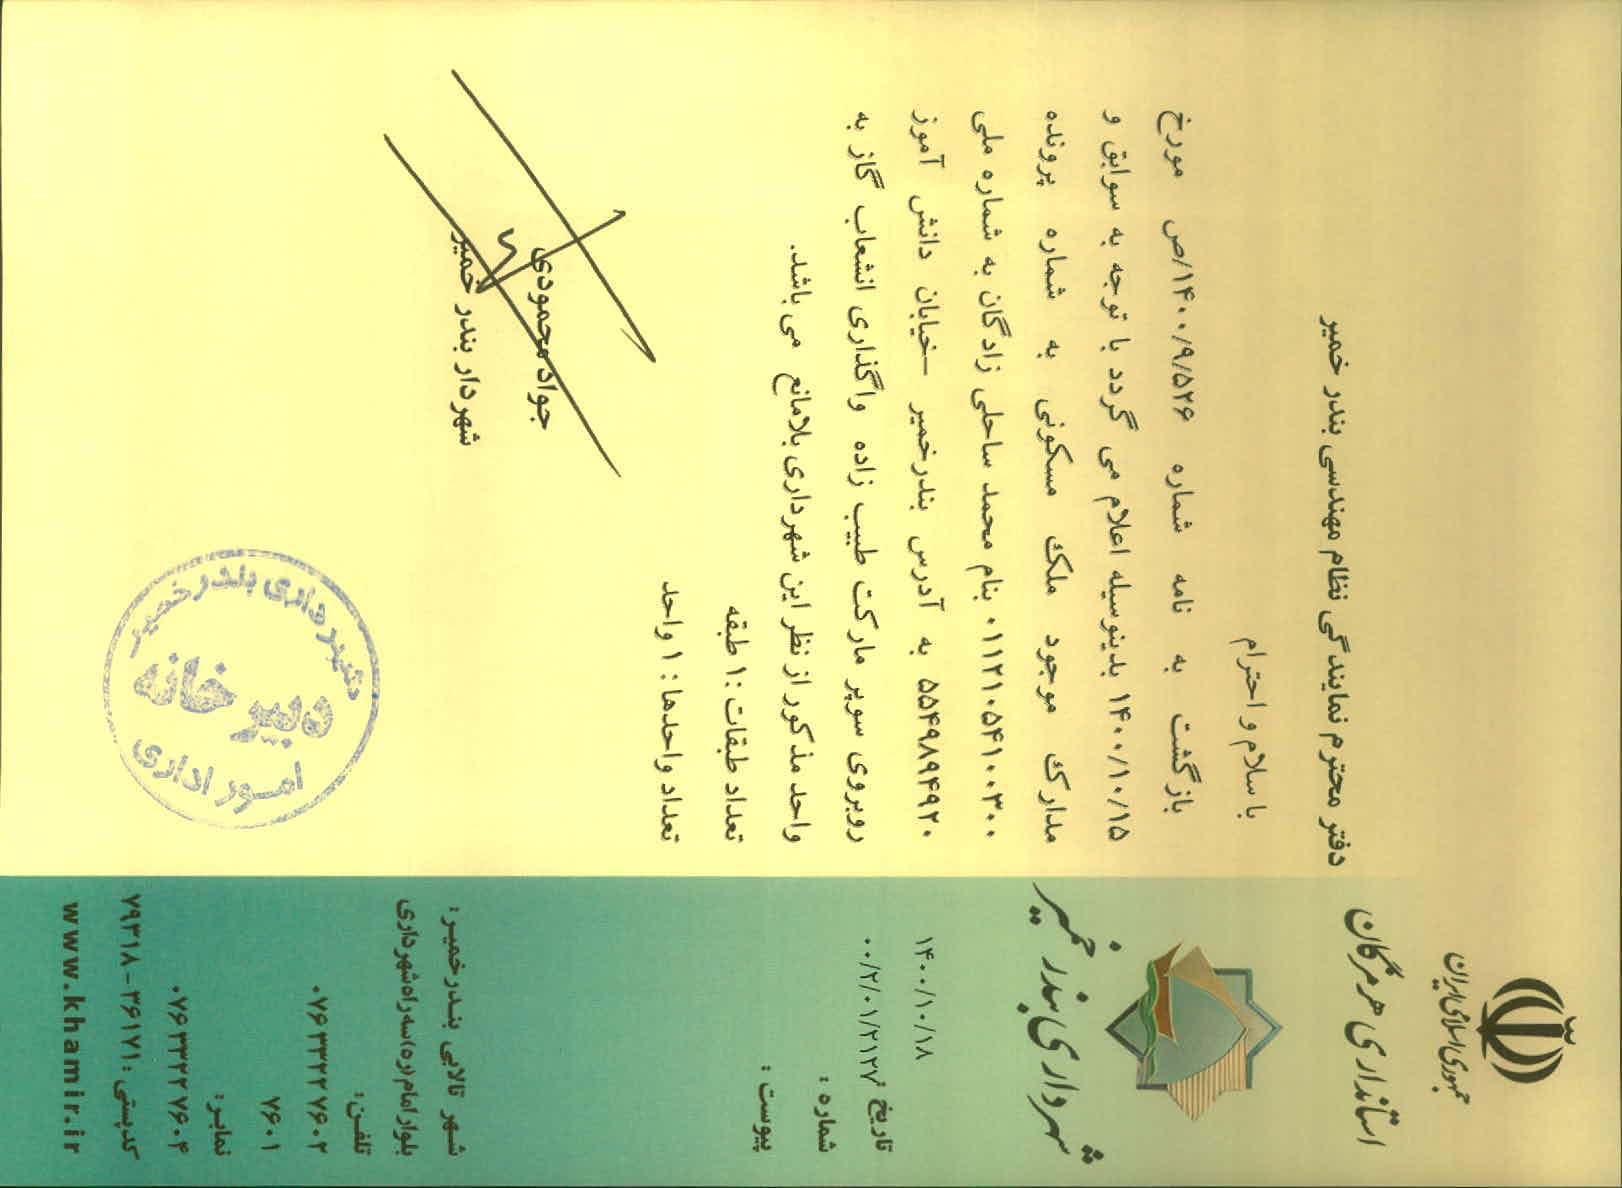 جمهوری اسلامی ایران
استانداری هرمزگان
شهرداری بندر خمیر
تاریخ : ۱۴۰۰/۱۰/۱۸
شماره : ۰۰/۲/۰۱/۲۱۲۷
پیوست :
دفتر محترم نمایندگی نظام مهندسی بندر خمیر
با سلام و احترام
بازگشت به نامه شماره ۱۴۰۰/۹/۵۲۶/ص مورخ
۱۴۰۰/۱۰/۱۵ بدینوسیله اعلام می گردد با توجه به سوابق و
مدارک موجود ملک مسکونی به شماره پرونده
۰۱۱۲۱۰۵۴۱۰۰۳۰۰ بنام محمد ساحلی زادگان به شماره ملی
۵۵۴۹۸۹۴۹۲۰ به آدرس بندرخمیر –خیابان دانش آموز
روبروی سوپر مارکت طبیب زاده واگذاری انشعاب گاز به
واحد مذکور از نظر این شهرداری بلامانع می باشد.
تعداد طبقات : ۱ طبقه
تعداد واحدها : ۱ واحد
جواد محمودی
شهردار بندر خمیر
شهرداری بندر خمیر
دبیرخانه
امور اداری
شهر تالابی بندر خمیر :
بلوار امام (ره) سه راه شهرداری
تلفن:
۰۷۶۳۳۲۲۷۶۰۲
۷۶۰۱
نمابر:
۰۷۶۳۳۲۲۷۶۰۴
کدپستی : ۳۶۱۷۱-۷۹۳۱۸
www.khamir.ir